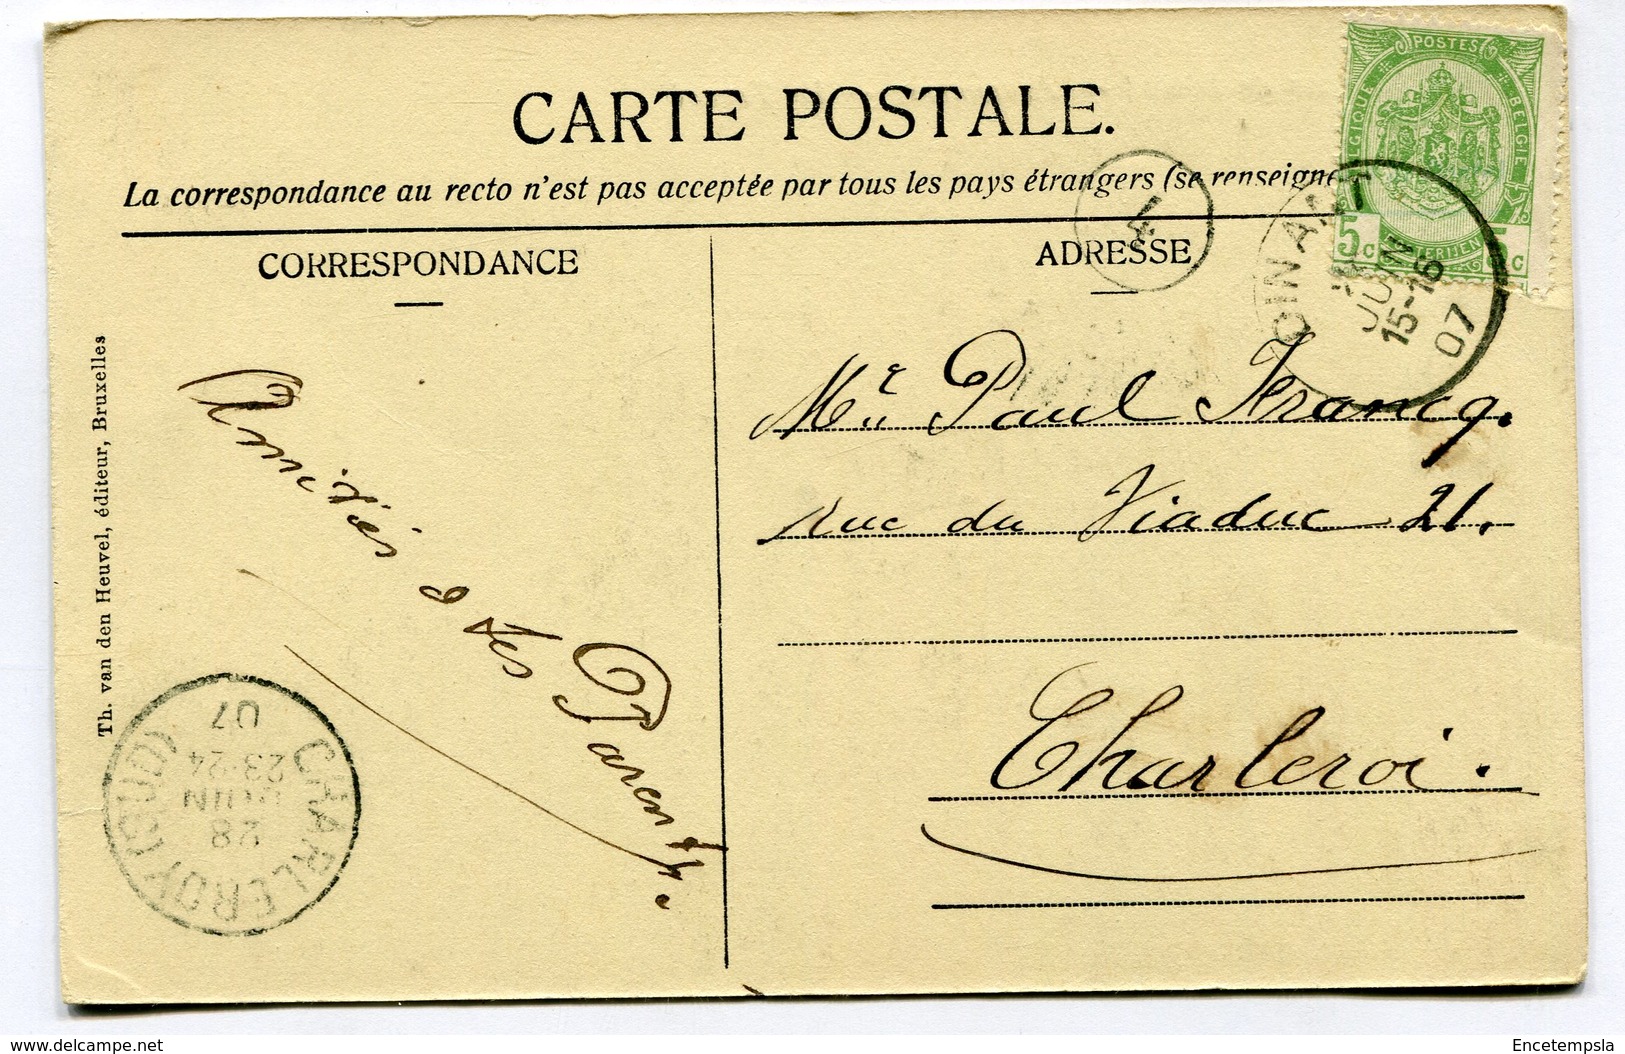 CARTE POSTALE.
La correspondance au recto n'est pas acceptée par tous les pays étrangers (se renseigne
CORRESPONDANCE
ADRESSE
4
POSTES
BELGIQUE BELGIE
5c 5c
DINANT
JUIN
15-16
07
Mr. Paul Francq.
rue du Viaduc 21.
Charleroi.
Amitiés à tes Parents.
Th. van den Heuvel, éditeur, Bruxelles
CHARLEROY
28
JUIN
23-24
07
delcampe.net
Encetempsla